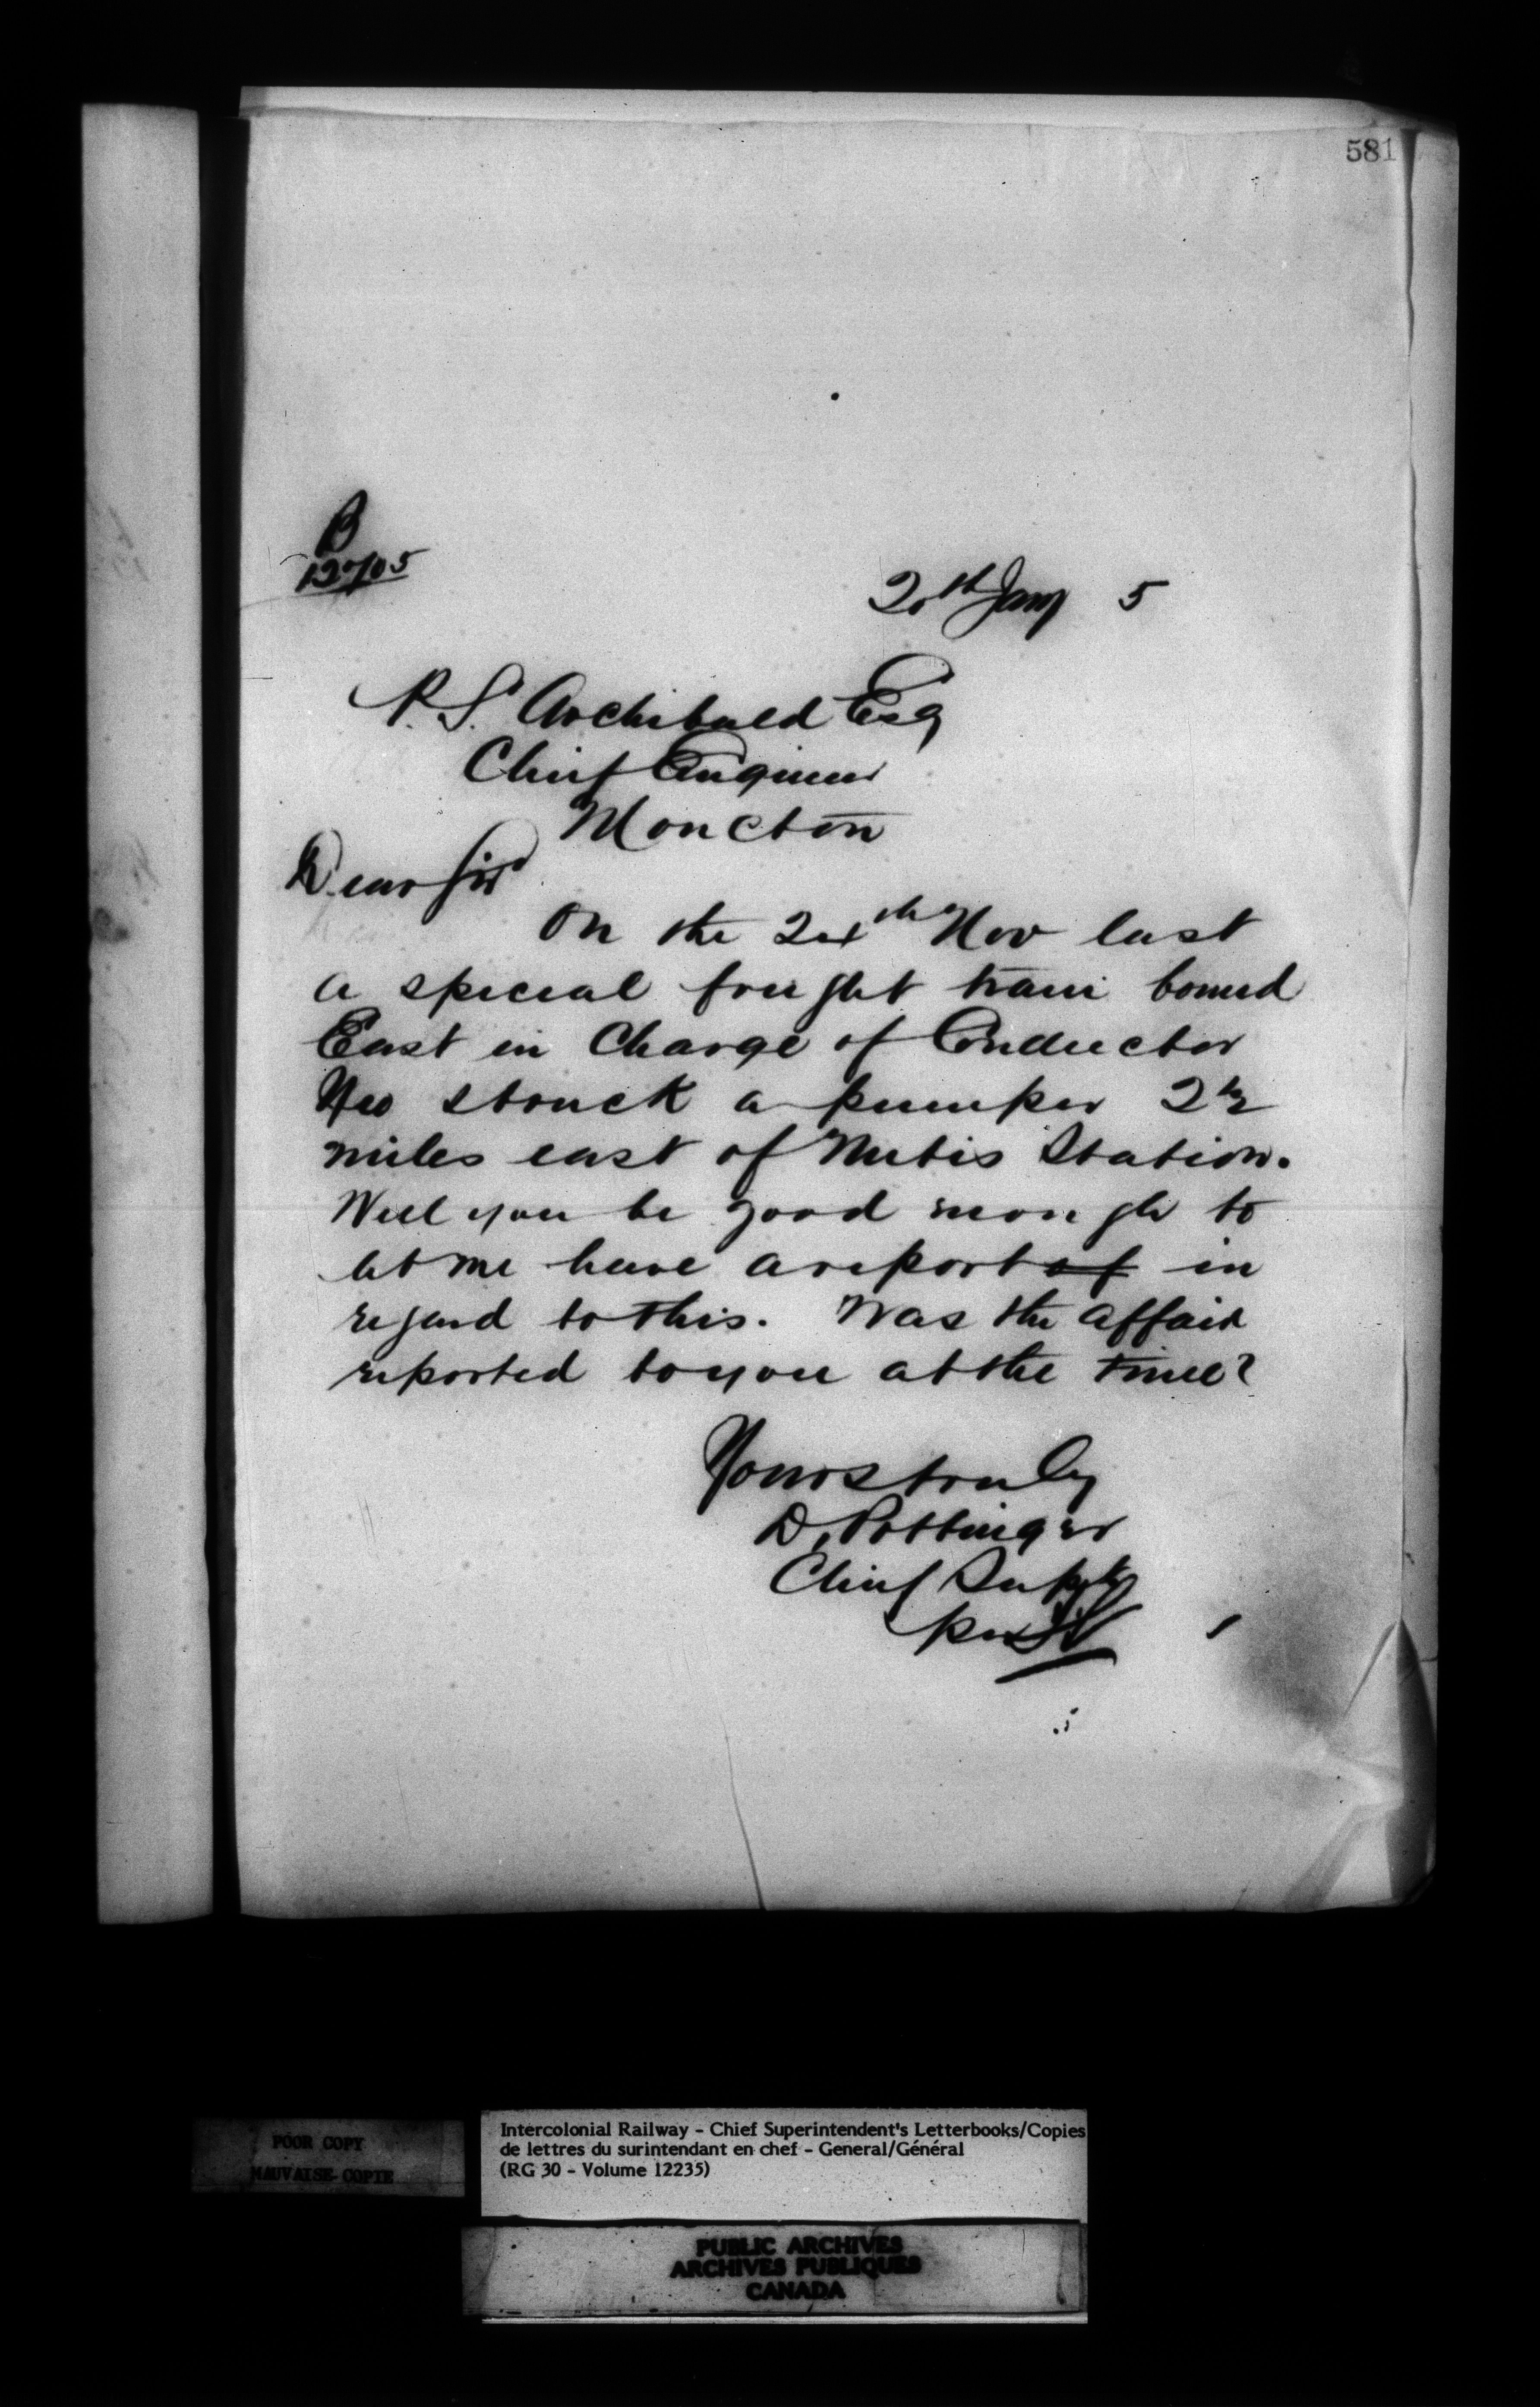 581
B
12705
20th Jany 5
P.S. Archibald Esq
Chief Engineer
Moncton
Dear Sir
On the 24th Nov last
a special freight train bound
East in Charge of Conductor
struck a pumper 2½
miles east of Metis Station.
Will you be good enough to
let me have a report of in
regard to this. Was the affair
reported to you at the time?
Yours truly
D. Pottinger
Chief Supt
per
POOR COPY
MAUVAISE COPIE
Intercolonial Railway - Chief Superintendent's Letterbooks/Copies
de lettres du surintendant en chef - General/Général
(RG 30 - Volume 12235)
PUBLIC ARCHIVES
ARCHIVES PUBLIQUES
CANADA